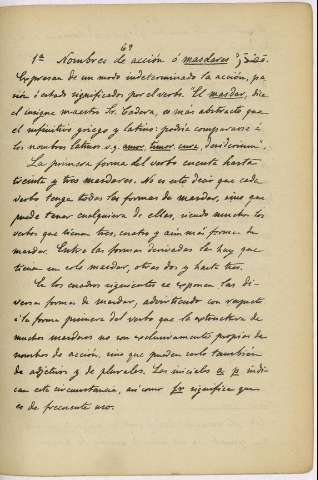 69
1ª Nombres de acción ó masdares
Expresan de un modo indeterminado la acción, pa
sión ó estado significados por el verbo. El masdar, dice
el insigne maestro Sr. Codera, es más abstracto que
el infinitivo griego y latino: podría compararse á
los nombres latinos v.g. amor, timor, cura, desiderium.
La primera forma del verbo cuenta hasta
treinta y tres masdares. No es esto decir que cada
verbo tenga todas las formas de masdar, sino que
puede tener cualquiera de ellas, siendo muchos los
verbos que tienen tres, cuatro y aún más formas de
masdar. Entre las formas derivadas las hay que
tienen un solo masdar, otras dos y hasta tres.
En los cuadros siguientes se exponen las di-
versas formas de masdar, advirtiendo con respecto
á la forma primera del verbo que la estructura de
muchos masdares no son exclusivamente propias de
nombre de acción, sino que pueden serlo también
de adjetivos y de plurales. Las iniciales a, p indi
can esta circunstancia, así como fr significa que
es de frecuente uso.